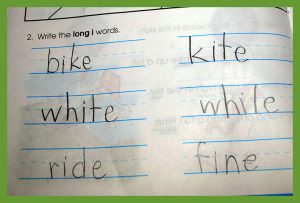 2. Write the long i words.
bike kite
white while
ride fine